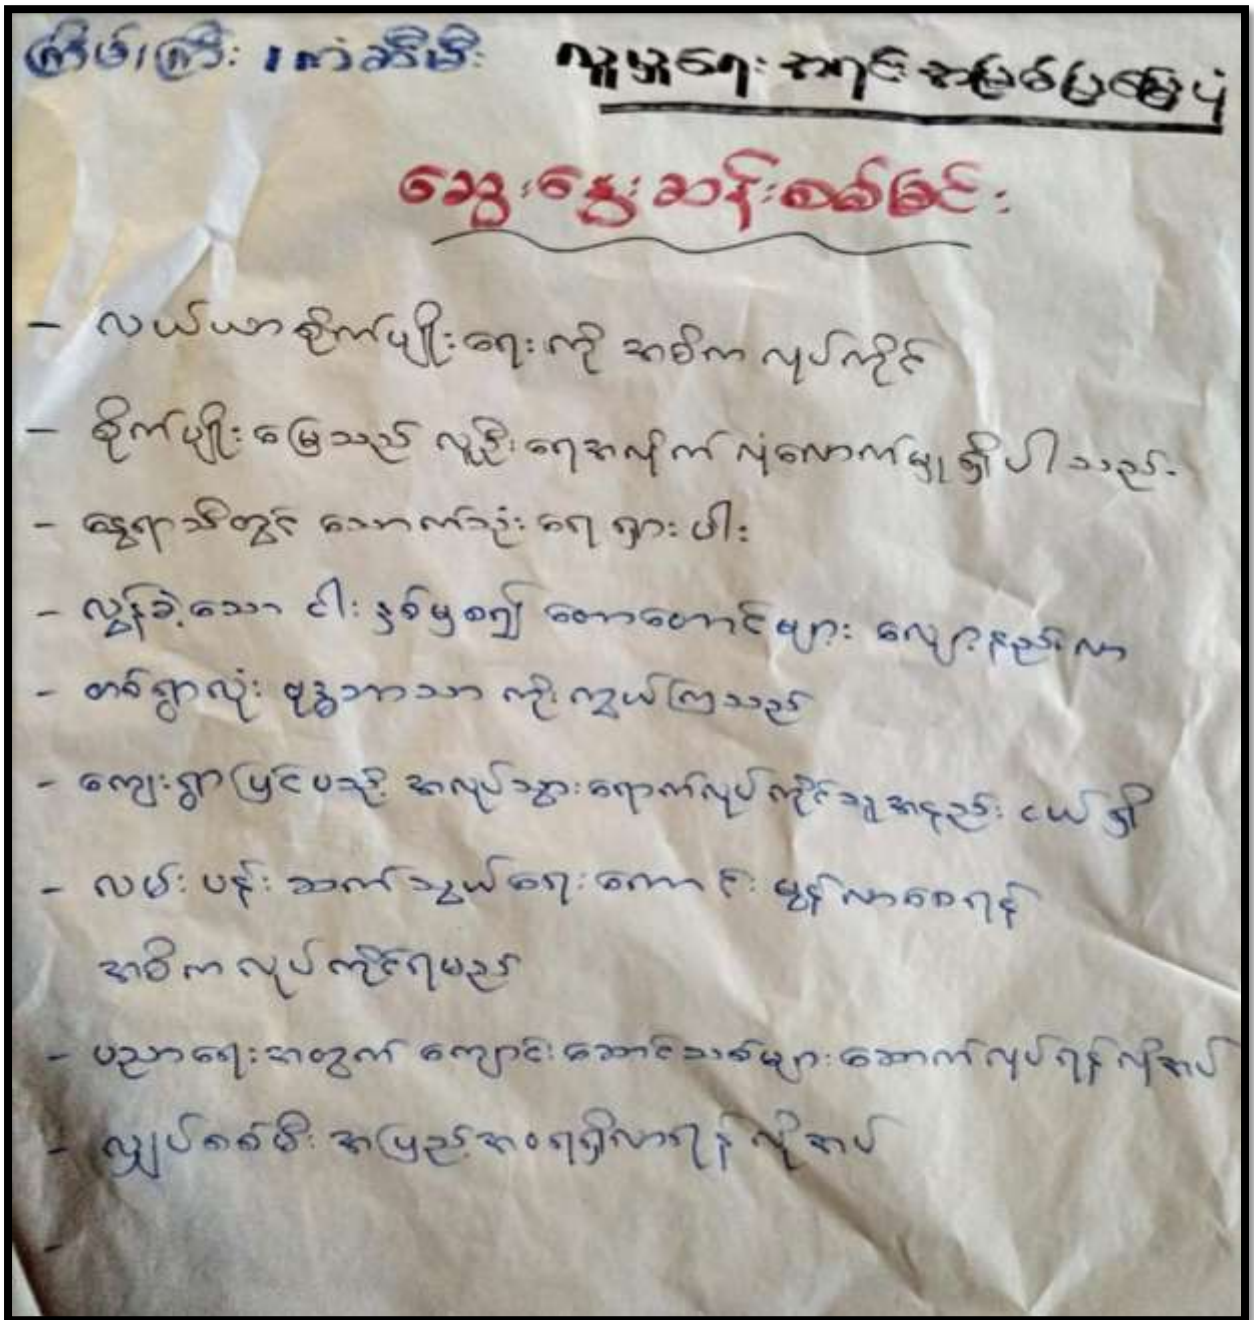 ကြိမ်ကြီး ၊ ကံဆီမီး လူမှုရေး အရင်းအမြစ်ပြမြေပုံ
ဆွေးနွေးဆန်းစစ်ခြင်း
- လယ်ယာစိုက်ပျိုးရေးကို အဓိက လုပ်ကိုင်
- စိုက်ပျိုးမြေသည် လူဦးရေအလိုက် လုံလောက်မှုရှိပါသည်။
- နွေရာသီတွင် သောက်သုံးရေ ရှားပါး
- လွန်ခဲ့သော ငါးနှစ်မှစ၍ တောတောင်များ လျော့နည်းလာ
- တစ်ရွာလုံး ဗုဒ္ဓဘာသာ ကိုးကွယ်ကြသည်
- ကျေးရွာပြင်ပသို့ အလုပ်သွားရောက်လုပ်ကိုင်သူအနည်းငယ်ရှိ
- လမ်းပန်းဆက်သွယ်ရေးကောင်းမွန်လာစေရန်
အဓိကလုပ်ကိုင်ရမည်
- ပညာရေးအတွက် ကျောင်းဆောင်သစ်များဆောက်လုပ်ရန်လိုအပ်
- လျှပ်စစ်မီး အပြည့်အဝရရှိလာရန် လိုအပ်
-